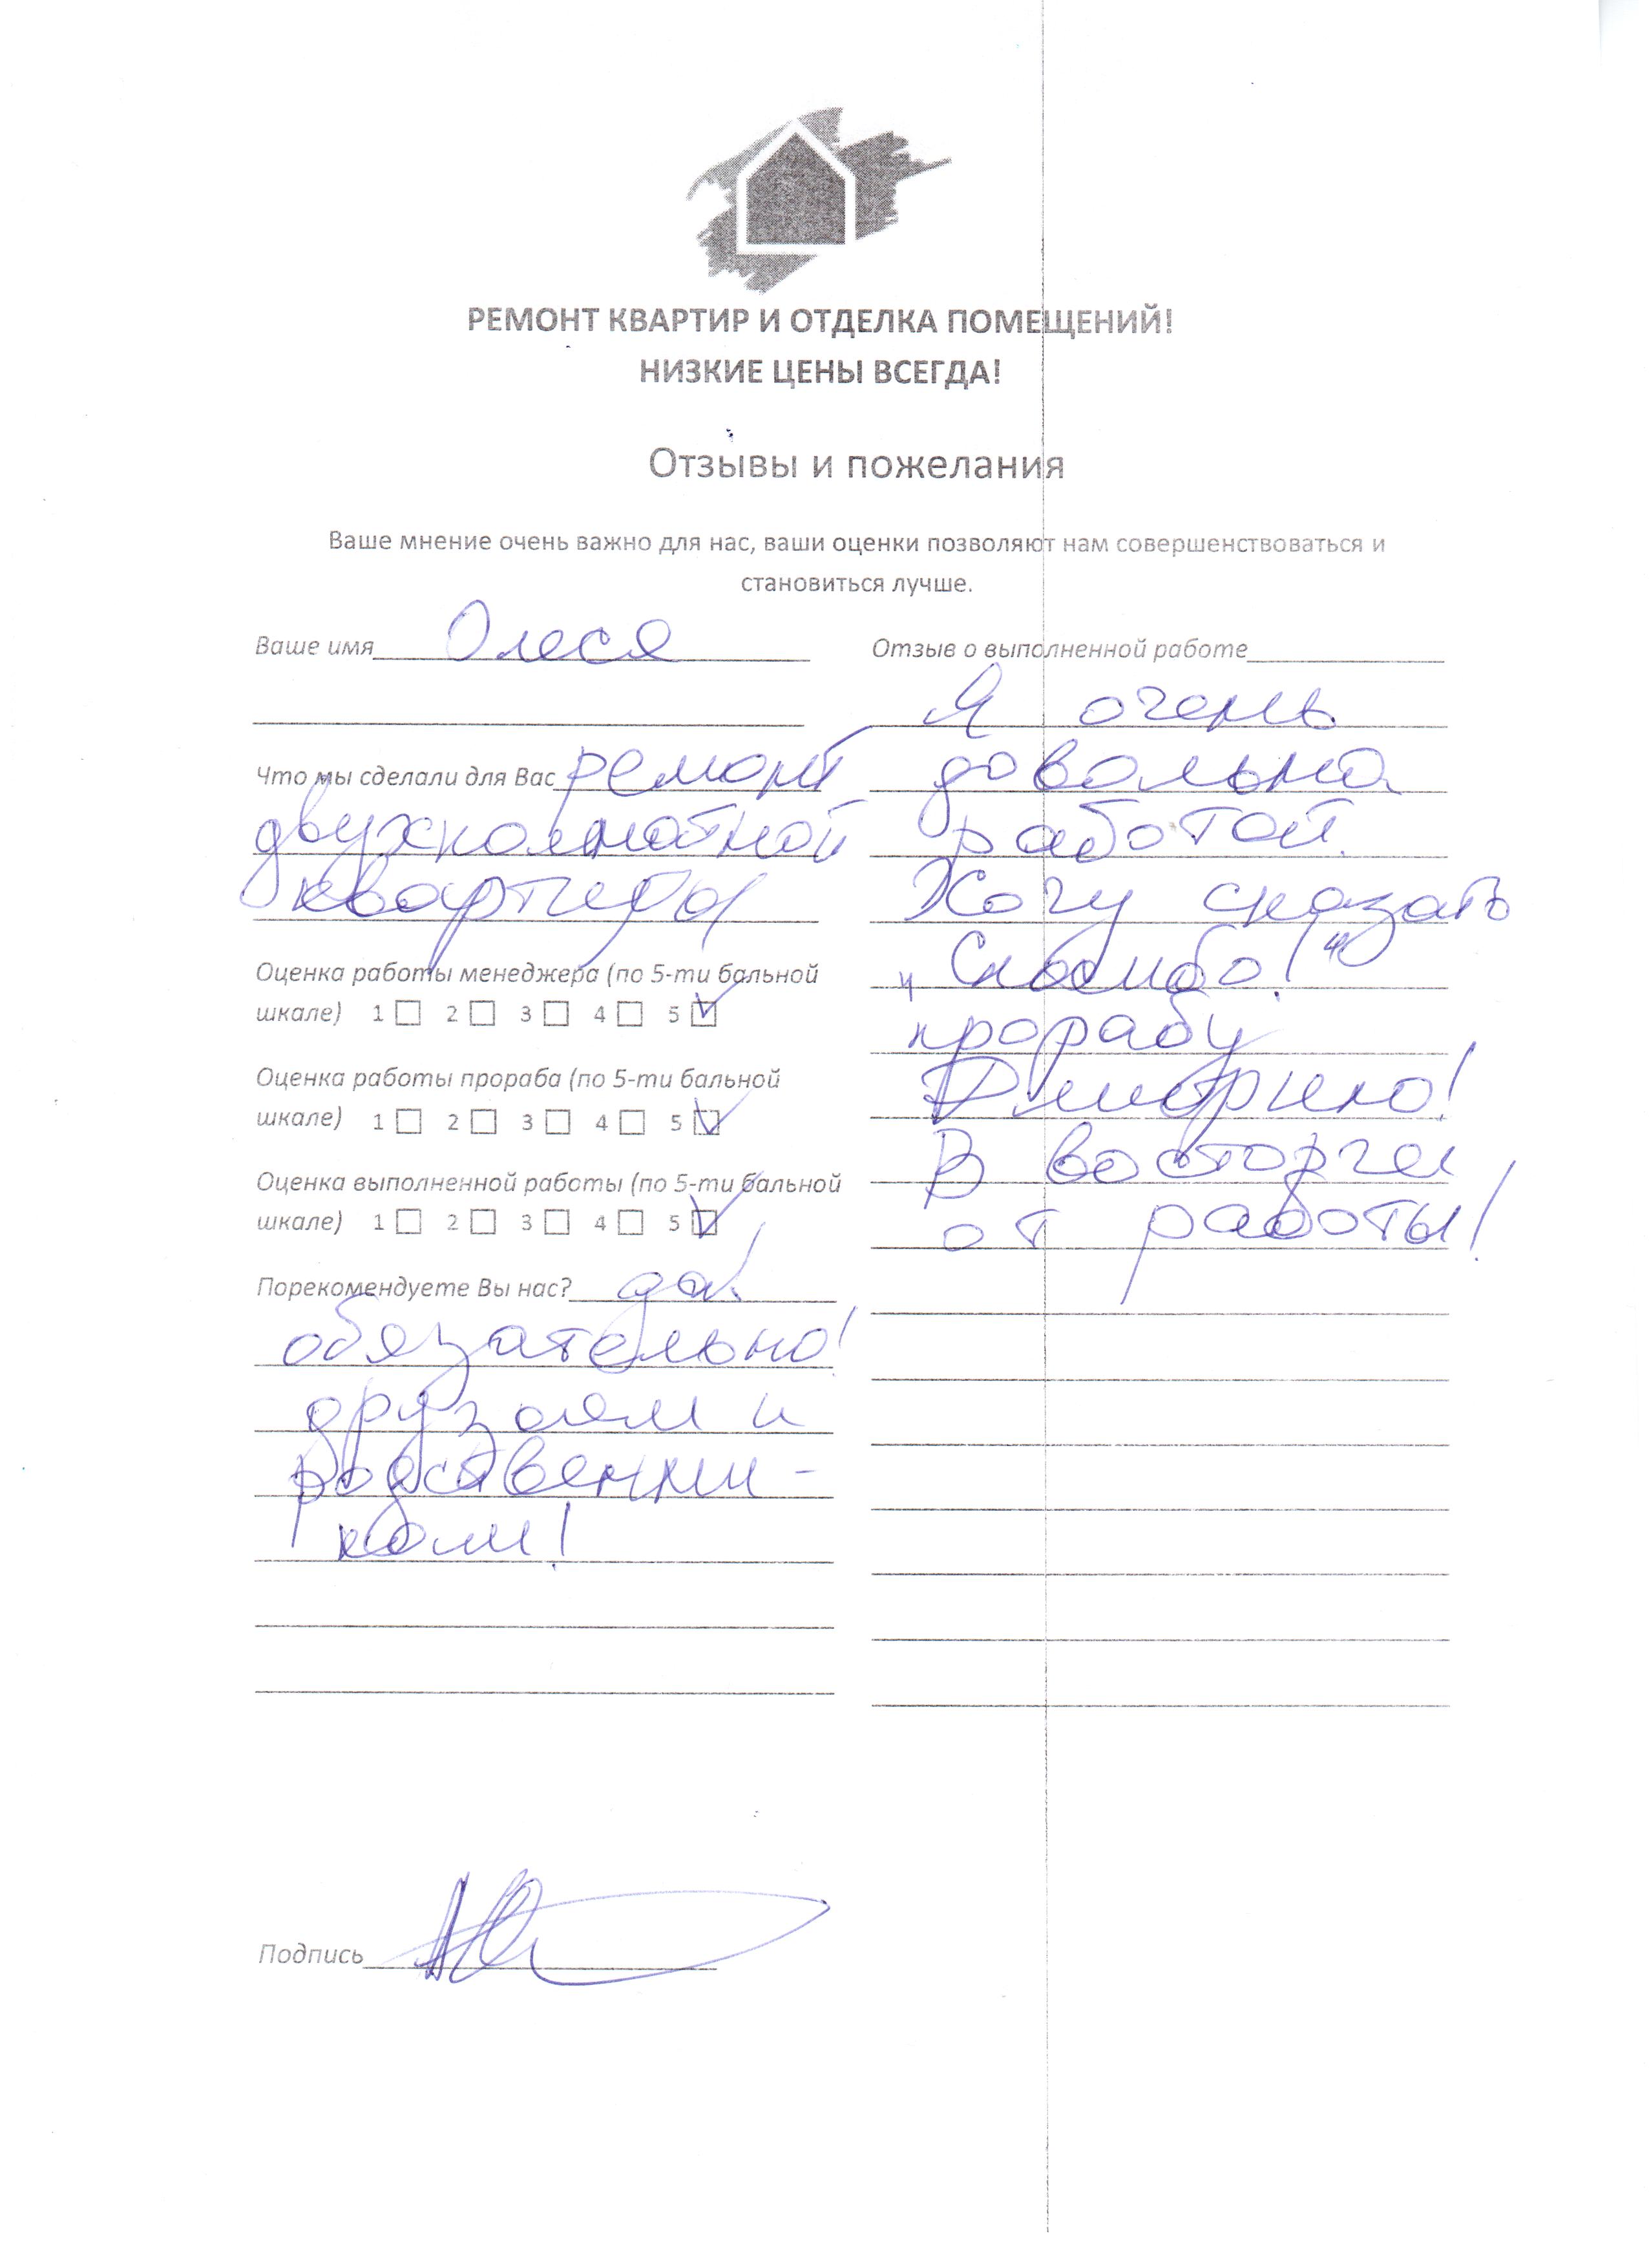 РЕМОНТ КВАРТИР И ОТДЕЛКА ПОМЕЩЕНИЙ!
НИЗКИЕ ЦЕНЫ ВСЕГДА!
Отзывы и пожелания
Ваше мнение очень важно для нас, ваши оценки позволяют нам совершенствоваться и
становиться лучше.
Ваше имя Олеся
Что мы сделали для Вас ремонт
двухкомнатной
квартиры
Оценка работы менеджера (по 5-ти бальной
шкале) 1 2 3 4 5
Оценка работы прораба (по 5-ти бальной
шкале) 1 2 3 4 5
Оценка выполненной работы (по 5-ти бальной
шкале) 1 2 3 4 5
Порекомендуете Вы нас? да!
обязательно!
друзьям и
родственни-
кам!
Отзыв о выполненной работе
Я очень
довольна
работой.
Хочу сказать
„Спасибо!"
прорабу
Дмитрию!
В восторге
от работы!
Подпись